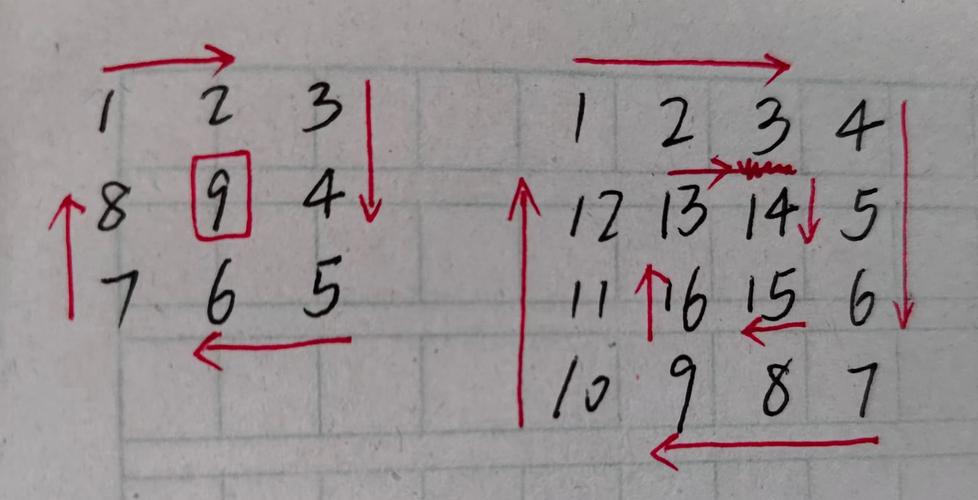 1 2 3
8 9 4
7 6 5
1 2 3 4
12 13 14 5
11 16 15 6
10 9 8 7